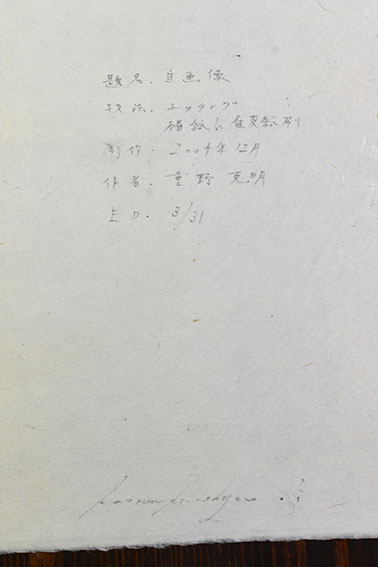 題名. 自画像
技法. エッチング
楮紙に雁皮紙刷り
制作. 2004年12月
作者. 重野克明
ED. 3/31